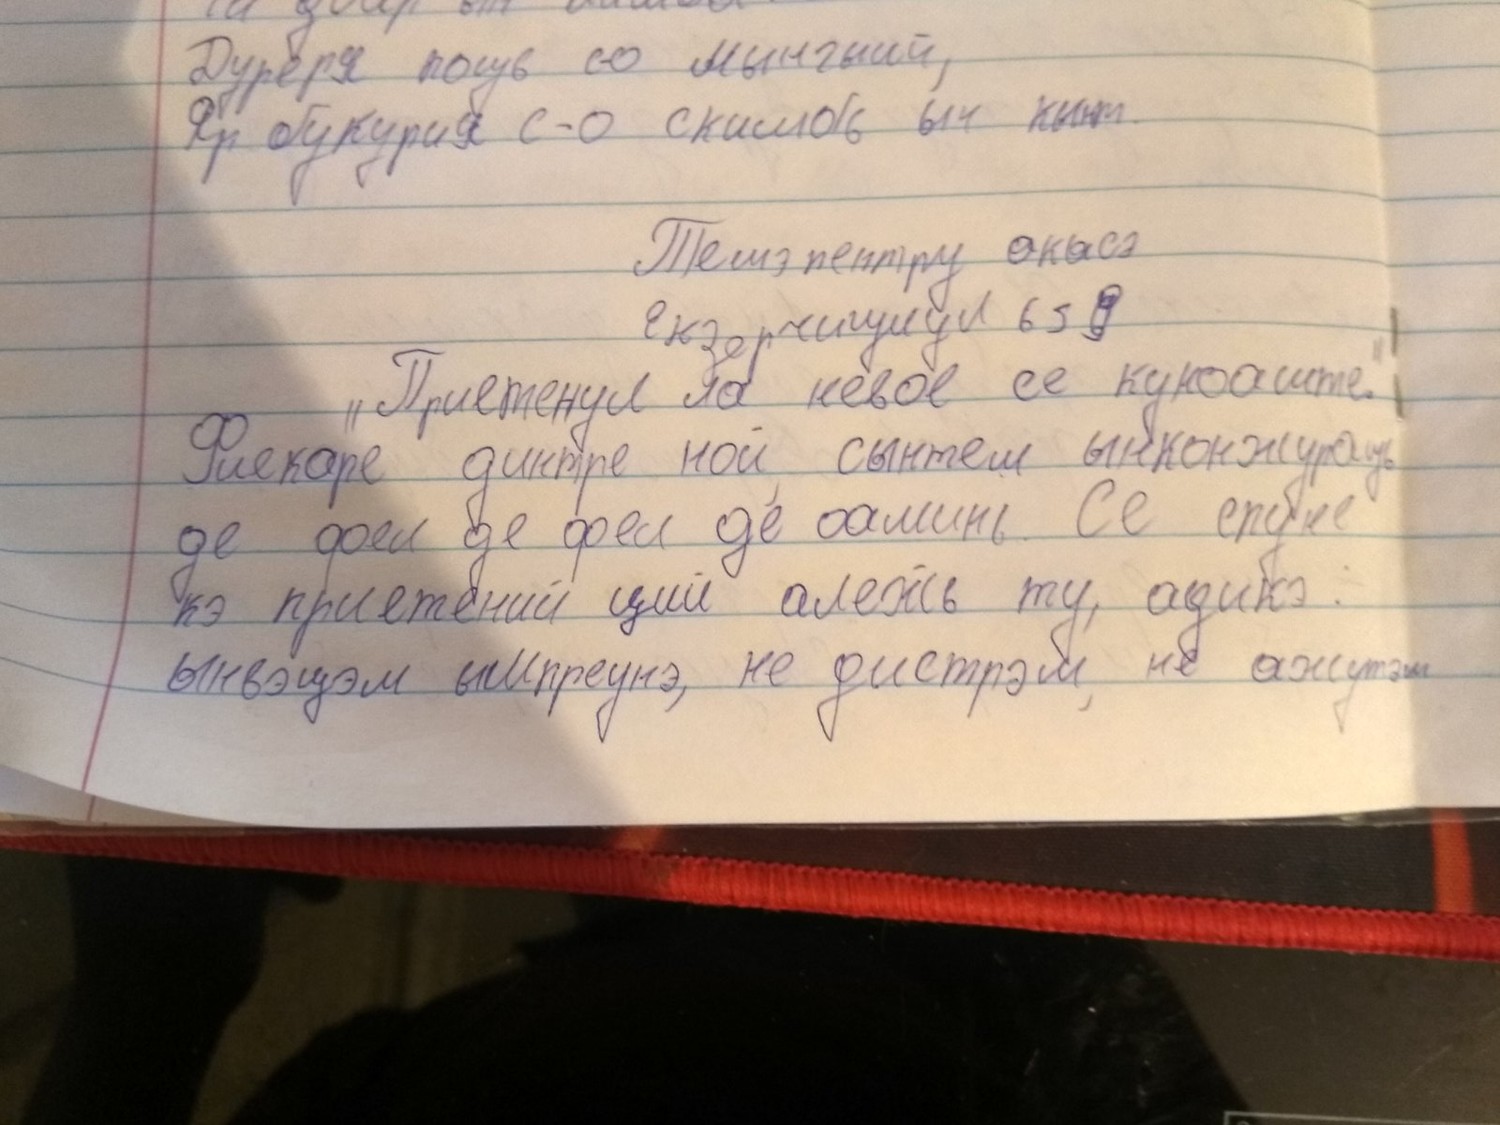 Дуреря поць с-о мынгый,
Яр букурия с-о скимбь ын кынт.
Темэ пентру акасэ
Екзерчициул 659
„Приетенул ла невое се куноаште."
Фиекаре динтре ной, сынтем ынконжураць
де фел де фел де оамень. Се спуне
кэ приетений ций алежь ту, адикэ:
ынвэцэм ымпреунэ, не дистрэм, не ажутэм